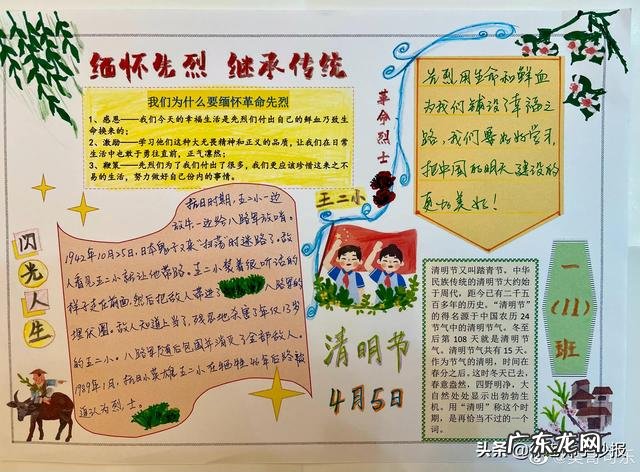 缅怀先烈 继承传统
我们为什么要缅怀革命先烈
1、感恩——我们今天的幸福生活是先烈们付出自己的鲜血乃致生
命换来的；
2、激励——学习他们这种大无畏精神和正义的品质，让我们在日常
生活中也敢于勇往直前，正气凛然；
3、鞭策——先烈们为了我们付出了很多，我们更应该珍惜这来之不
易的生活，努力做好自己份内的事情。
革命烈士
王二小
先烈用生命和鲜血
为我们铺设了幸福之
路，我们要好好学习，
把中国的明天建设的
更加美好！
闪光人生
抗日时期，王二小一边
放牛一边给八路军放哨。
1942年10月25日，日本鬼子又来"扫荡"时迷路了。敌
人看见王二小就让他带路。王二小装着很听话的
样子走在前面，然后把敌人带进了八路军的
埋伏圈。敌人知道上当了，残忍地杀害了年仅13岁
的王二小。八路军随后包围并消灭了全部敌人。
1989年1月，抗日小英雄王二小在牺牲46年后终被
追认为烈士。
清明节
4月5日
清明节又叫踏青节，中华
民族传统的清明节大约始
于周代，距今已有二千五
百多年的历史。"清明节"
的得名源于中国农历 24
节气中的清明节气。冬至
后第 108 天就是清明节
气。清明节气共有 15 天。
作为节气的清明，时间在
春分之后。这时冬天已去，
春意盎然，四野明净，大
自然处处显示出勃勃生
机。用"清明"称这个时
期，是再恰当不过的一个
词。
一(11)班
头条
广东龙网